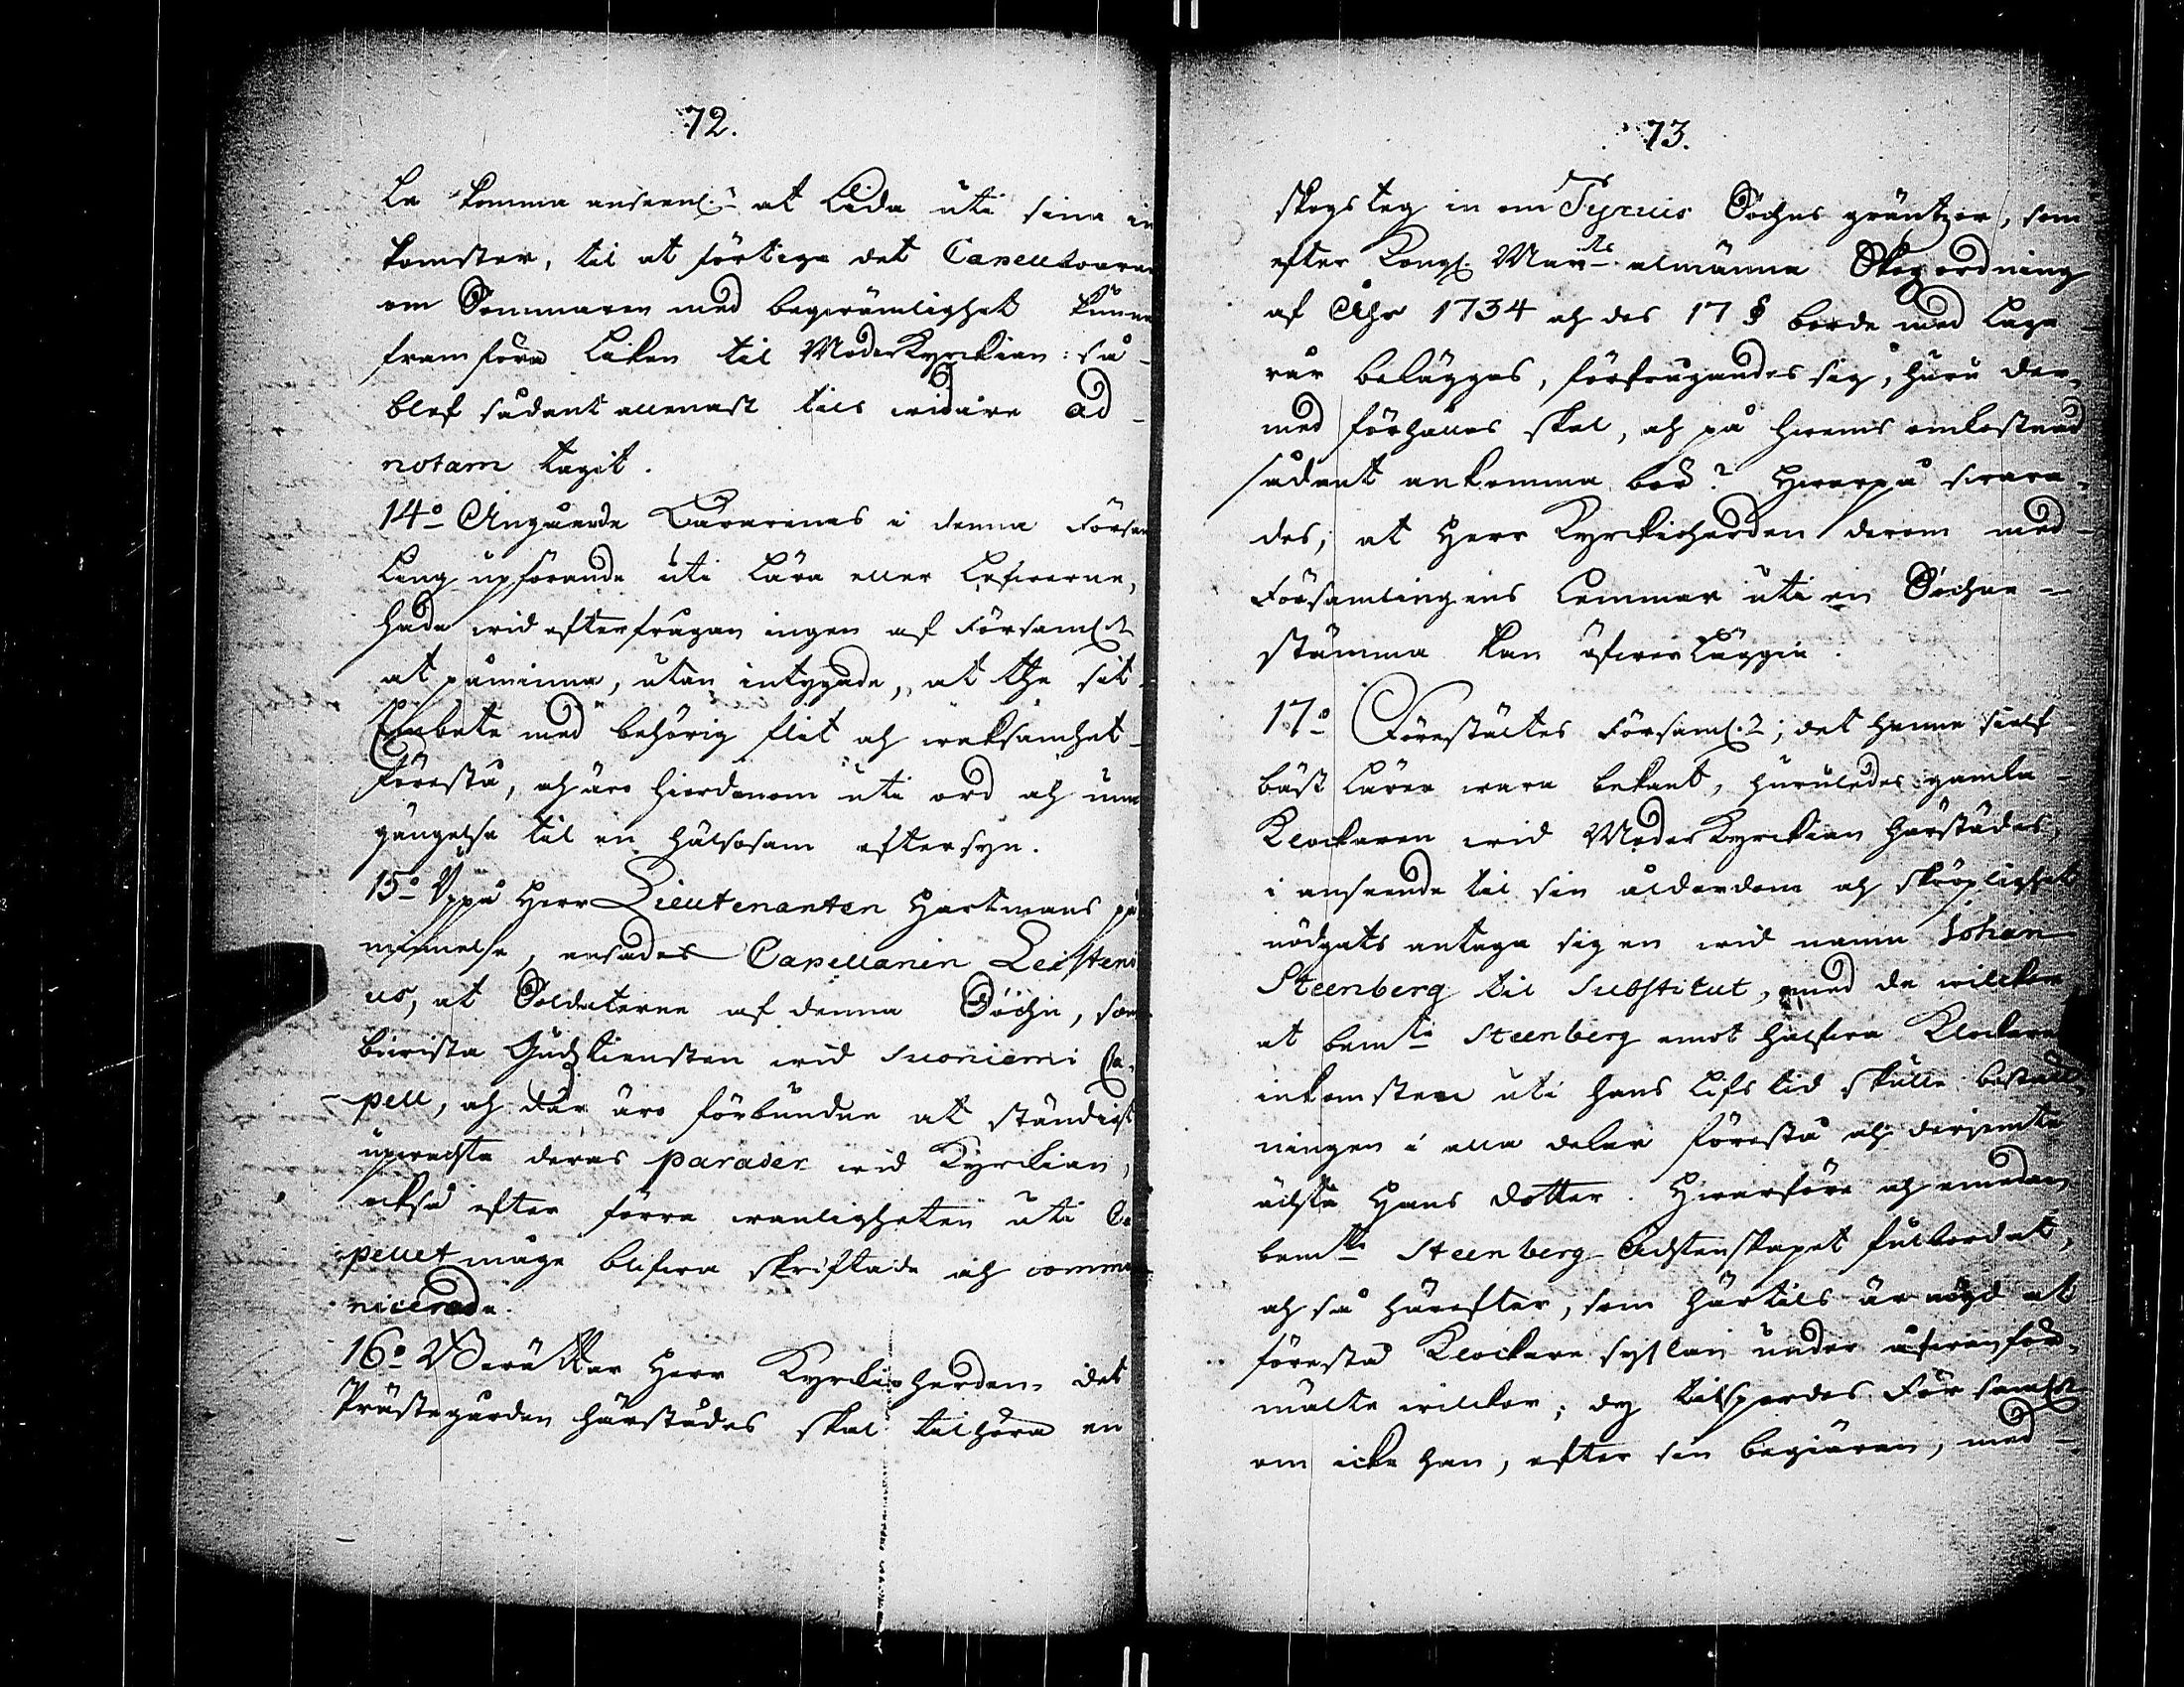 72.
le komma anseenl. at lida uti sina in
komster, til at förtiga det Capellboarne
om Sommaren med beqwämlighet kunna
framföra liken til ModerKyrckian: så
blef sådant allenast tils widare ad
notam tagit.
14:o Angående Lärarenas i denna Försam
ling upförande uti lära eller lefwerne,
hade wid efterfrågan ingen af Församl:n
at påminna, utan intygade, at the sit
Embete med behörig flit och waksamhet
förestå, och äro hiordenom uti ord och um
gängelse til en hälsosam eftersyn.
15:o Uppå Herr Lieutenanten Hartmans på
minnelse, utsades Capellanen Leisteni
us, at Soldaterne af denna Sochn, som
biwista Gudstiensten wid Suoniemi Ca
pell, och där äro förbundne at ständigt
upwachta deras parader wid Kyrckian,
också efter förra wanligheten uti Ca
pellet måge blifwa skriftade och commu
nicerade.
16:o Berättar Herr Kyrckioherden, det
Prästegården härstädes skal tilhöra en
73.
skogsteg in om Tyrwis Sochns gräntzor, som
efter Kongl. May:ts almänna Skogordning
af Åhr 1734 och des 17 § borde med laga
rår beläggas, förfrågandes sig, huru der
med förhållas skal, och på hwems omkostnad
sådant ankomma bör? Hwarpå swara
des, at Herr Kyrckioherden derom med
Församlingens lemmar uti en Sochne
stämma kan öfwerläggia.
17:o Förestältes Församl:n, det henne sielf
bäst lärer wara bekant, huruledes gamla
Klockaren wid ModerKyrckian härstädes,
i anseende til sin ålderdom och skröplighet
nödgats antaga sig en wid namn Johan
Steenberg til Substitut, med de wilckor
at bem:te Steenberg emot halfwa Klockare
inkomsten uti hans lifstid skulle beställ
ningen i alla delar förestå och derjemte
ächta Hans dotter. Hwarföre och emedan
bem:te Steenberg Achtenskapet fulbordat,
och så härefter, som härtils är nögd at
förestå Klockare sysslan under ofwanför
mälte wilckor; dy tilspordes Församl:n
om icke han, efter sin begiäran, med